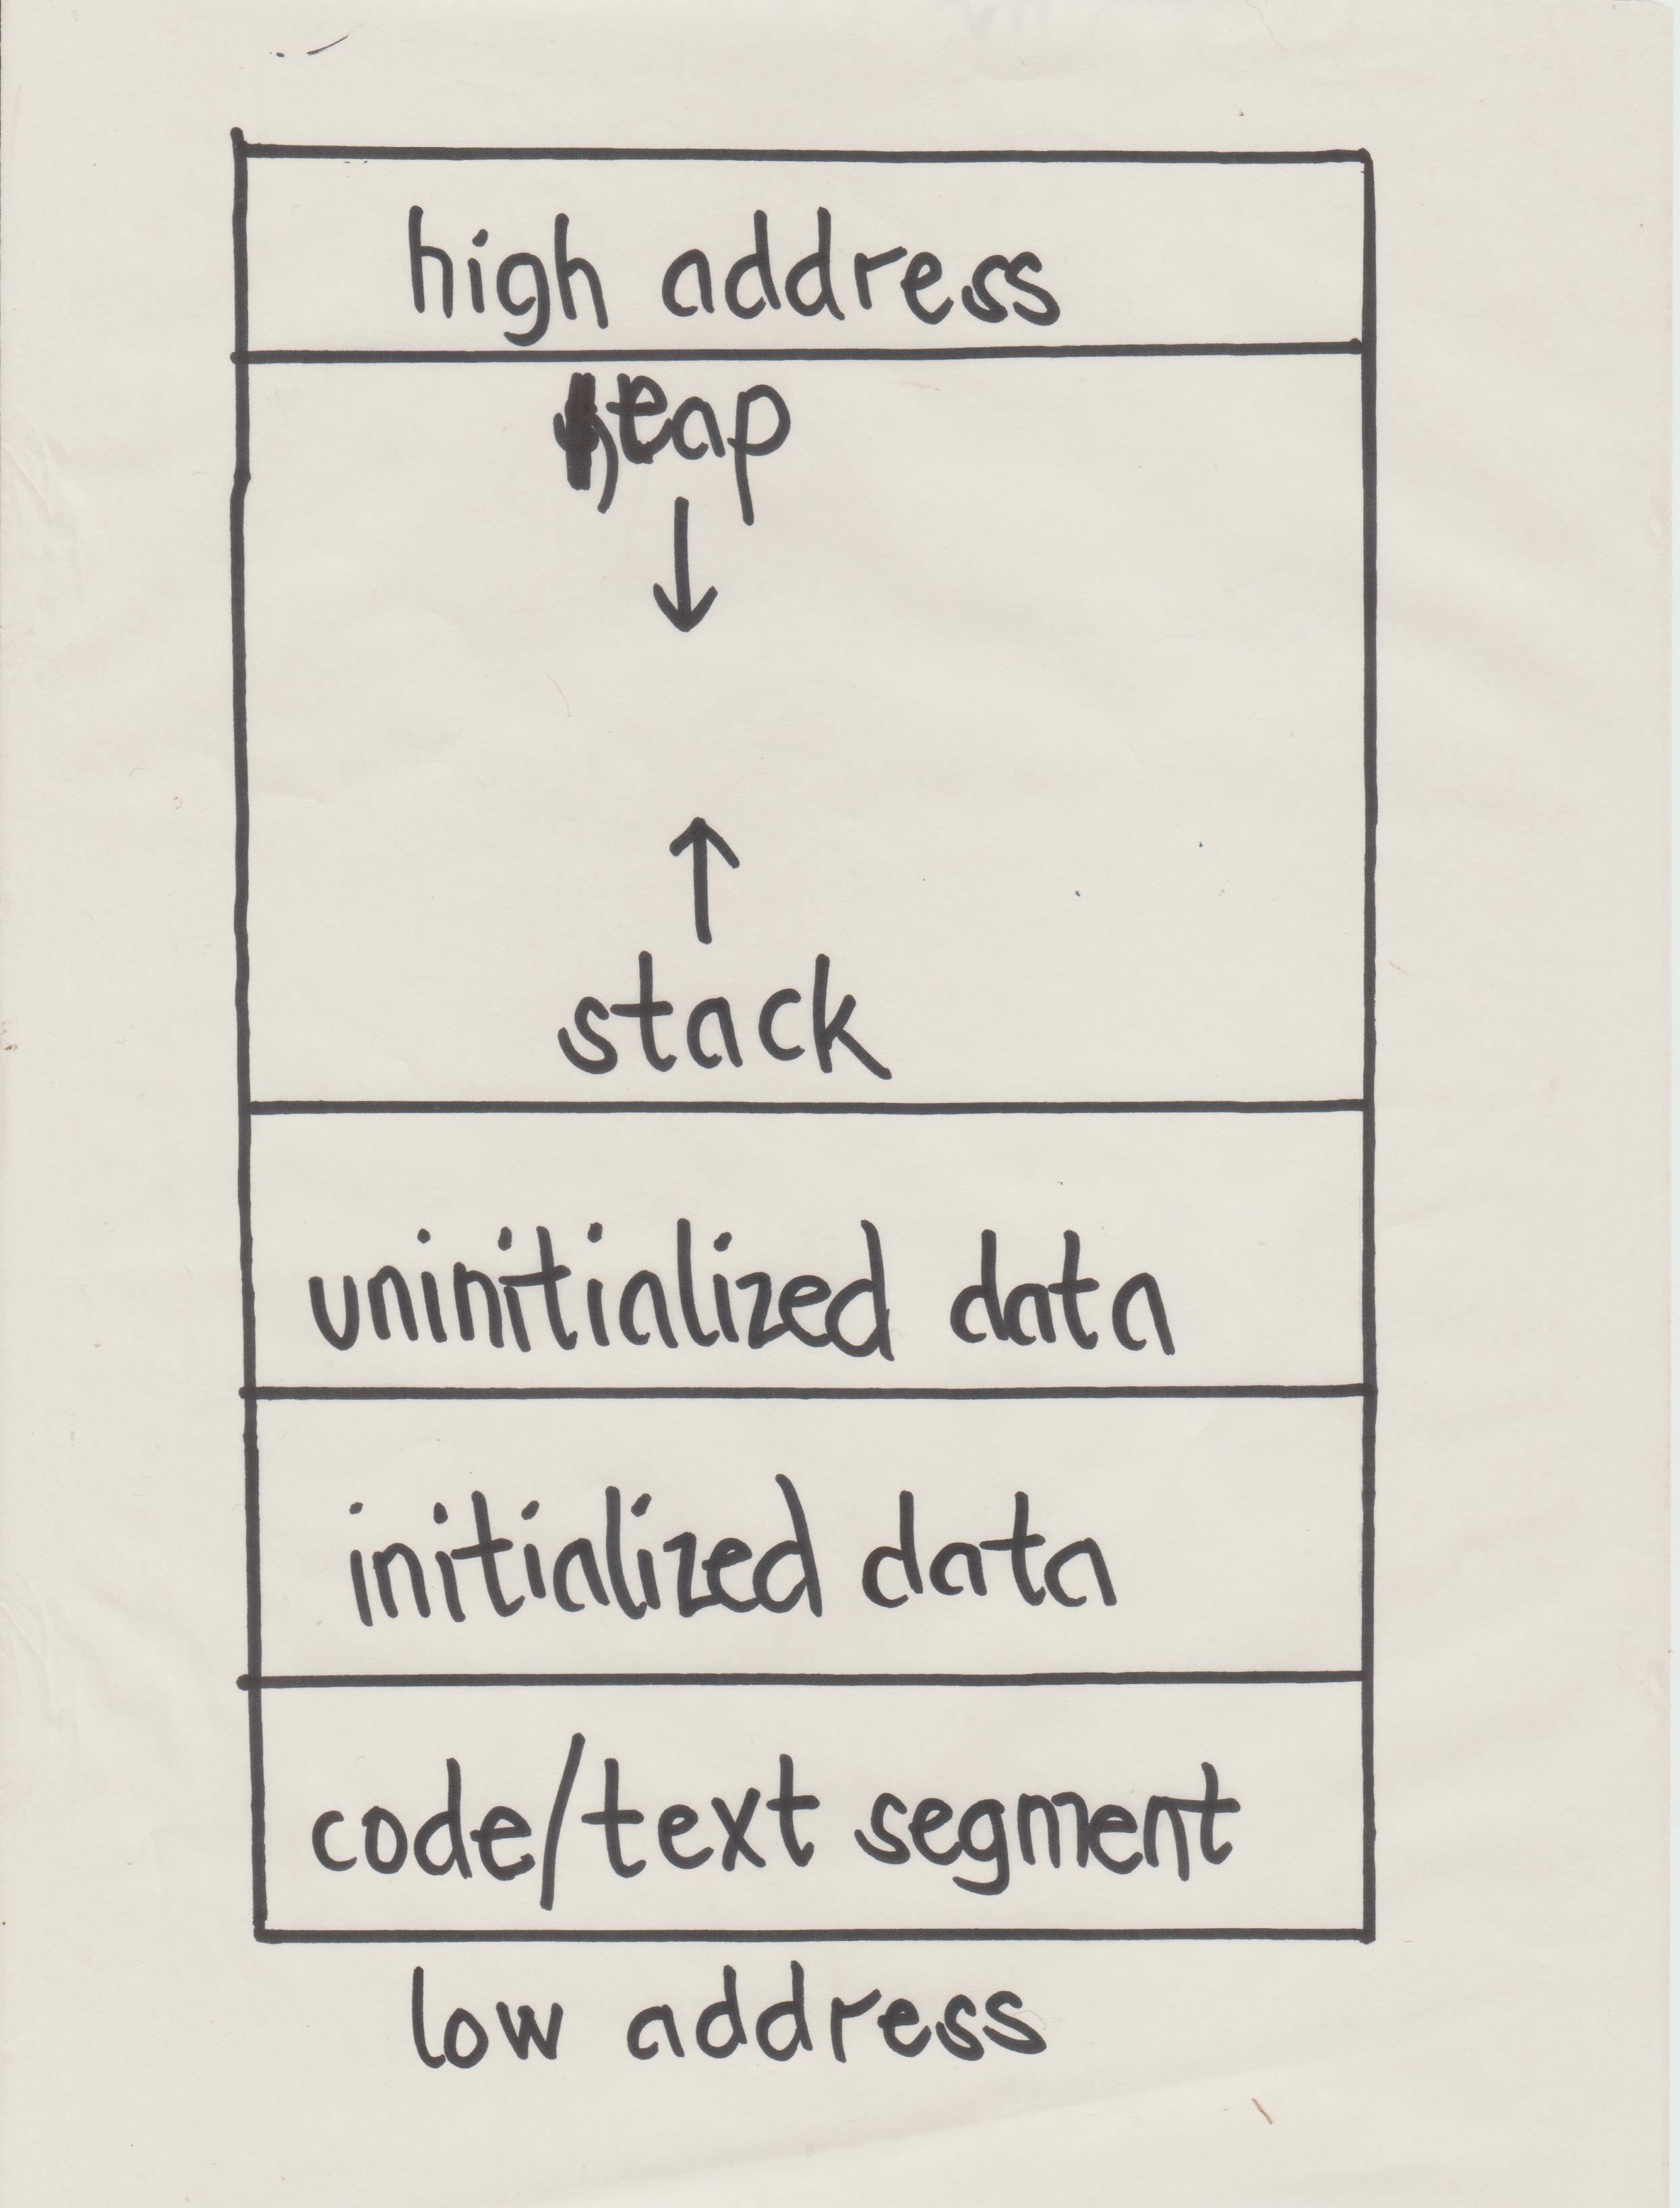 high address
heap
↓
↑
stack
uninitialized data
initialized data
code/text segment
low address